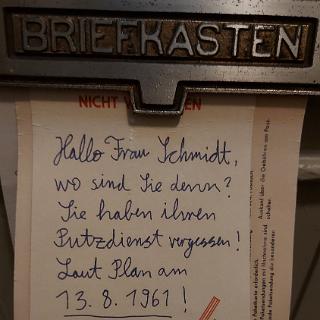 BRIEFKASTEN
NICHT
Hallo Frau Schmidt,
wo sind Sie denn?
Sie haben ihren
Putzdienst vergessen!
Laut Plan am
13. 8. 1961!